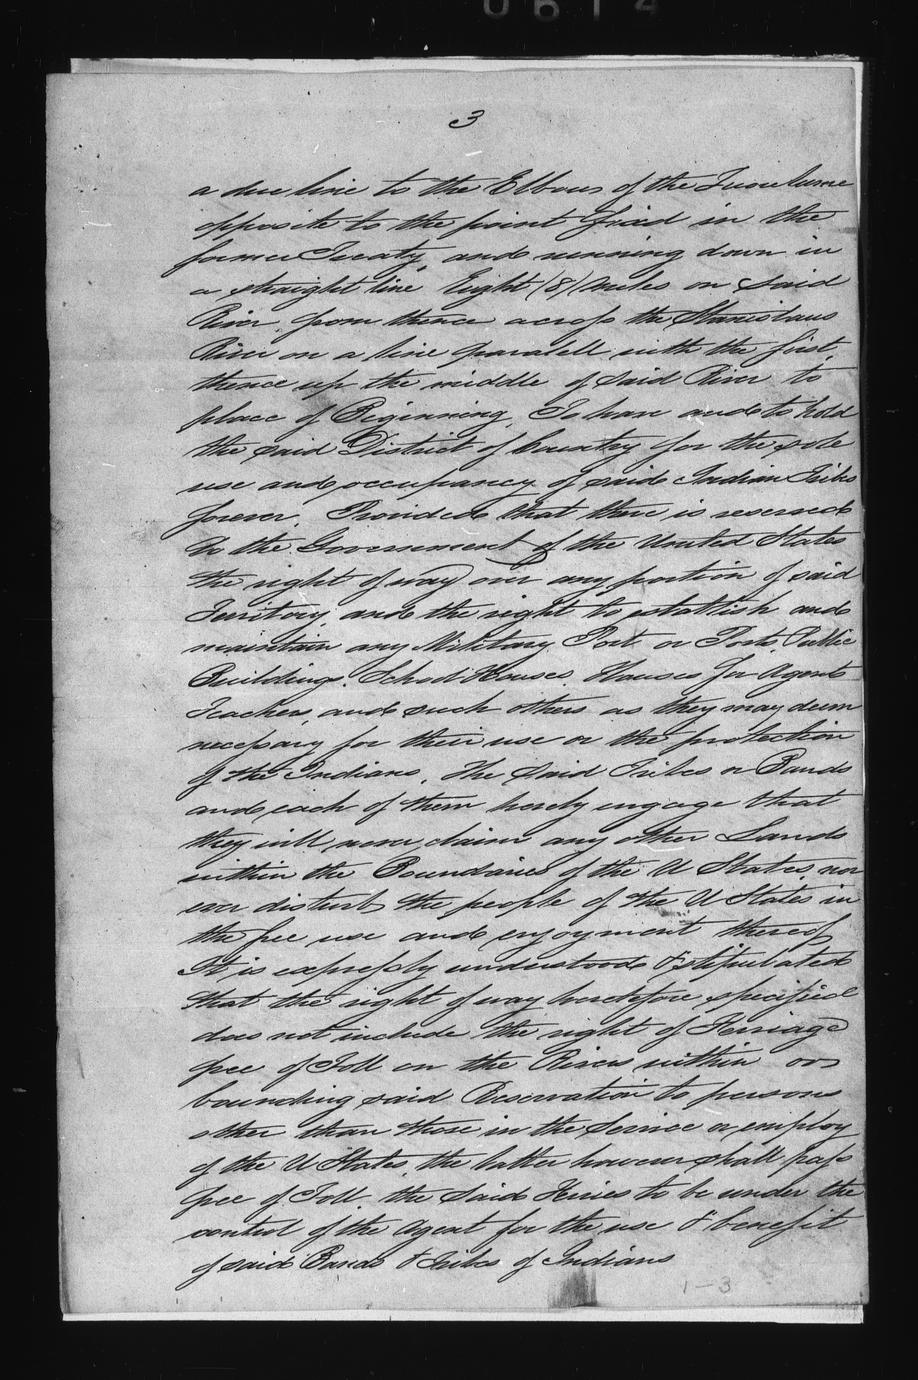 0614
3
a due line to the Elbow of the Tuoulume
opposite to the point fixed in the
former Treaty, and running down in
a straight line Eight (8) Miles on said
River, from thence across the Stanislaus
River on a line paralell with the first,
thence up the middle of said River to
place of Beginning, To have and to hold
the said District of Country for the sole
use and occupancy of said Indian Tribes
forever. Provided that there is reserved
to the Government of the United States
the right of way over any portion of said
Territory, and the right to establish and
maintain any Military Post or Posts, Public
Buildings, School Houses, Houses for Agents
Teachers, and such others as they may deem
necessary for their use or the protection
of the Indians, The said Tribes or Bands
and each of them hereby engage that
they will never claim any other Lands
within the Boundaries of the U States, nor
ever disturb the people of the U States in
the free use and enjoyment thereof,
It is expressly understood & stipulated
that the right of way heretofore specified
does not include the right of Ferriage
free of Toll on the Rivers within or
bounding said Reservation to persons
other than those in the Service or employ
of the U States, the latter however shall pass
free of Toll. the said Feries to be under the
control of the Agent for the use & benefit
of said Bands & Tribes of Indians
1-3